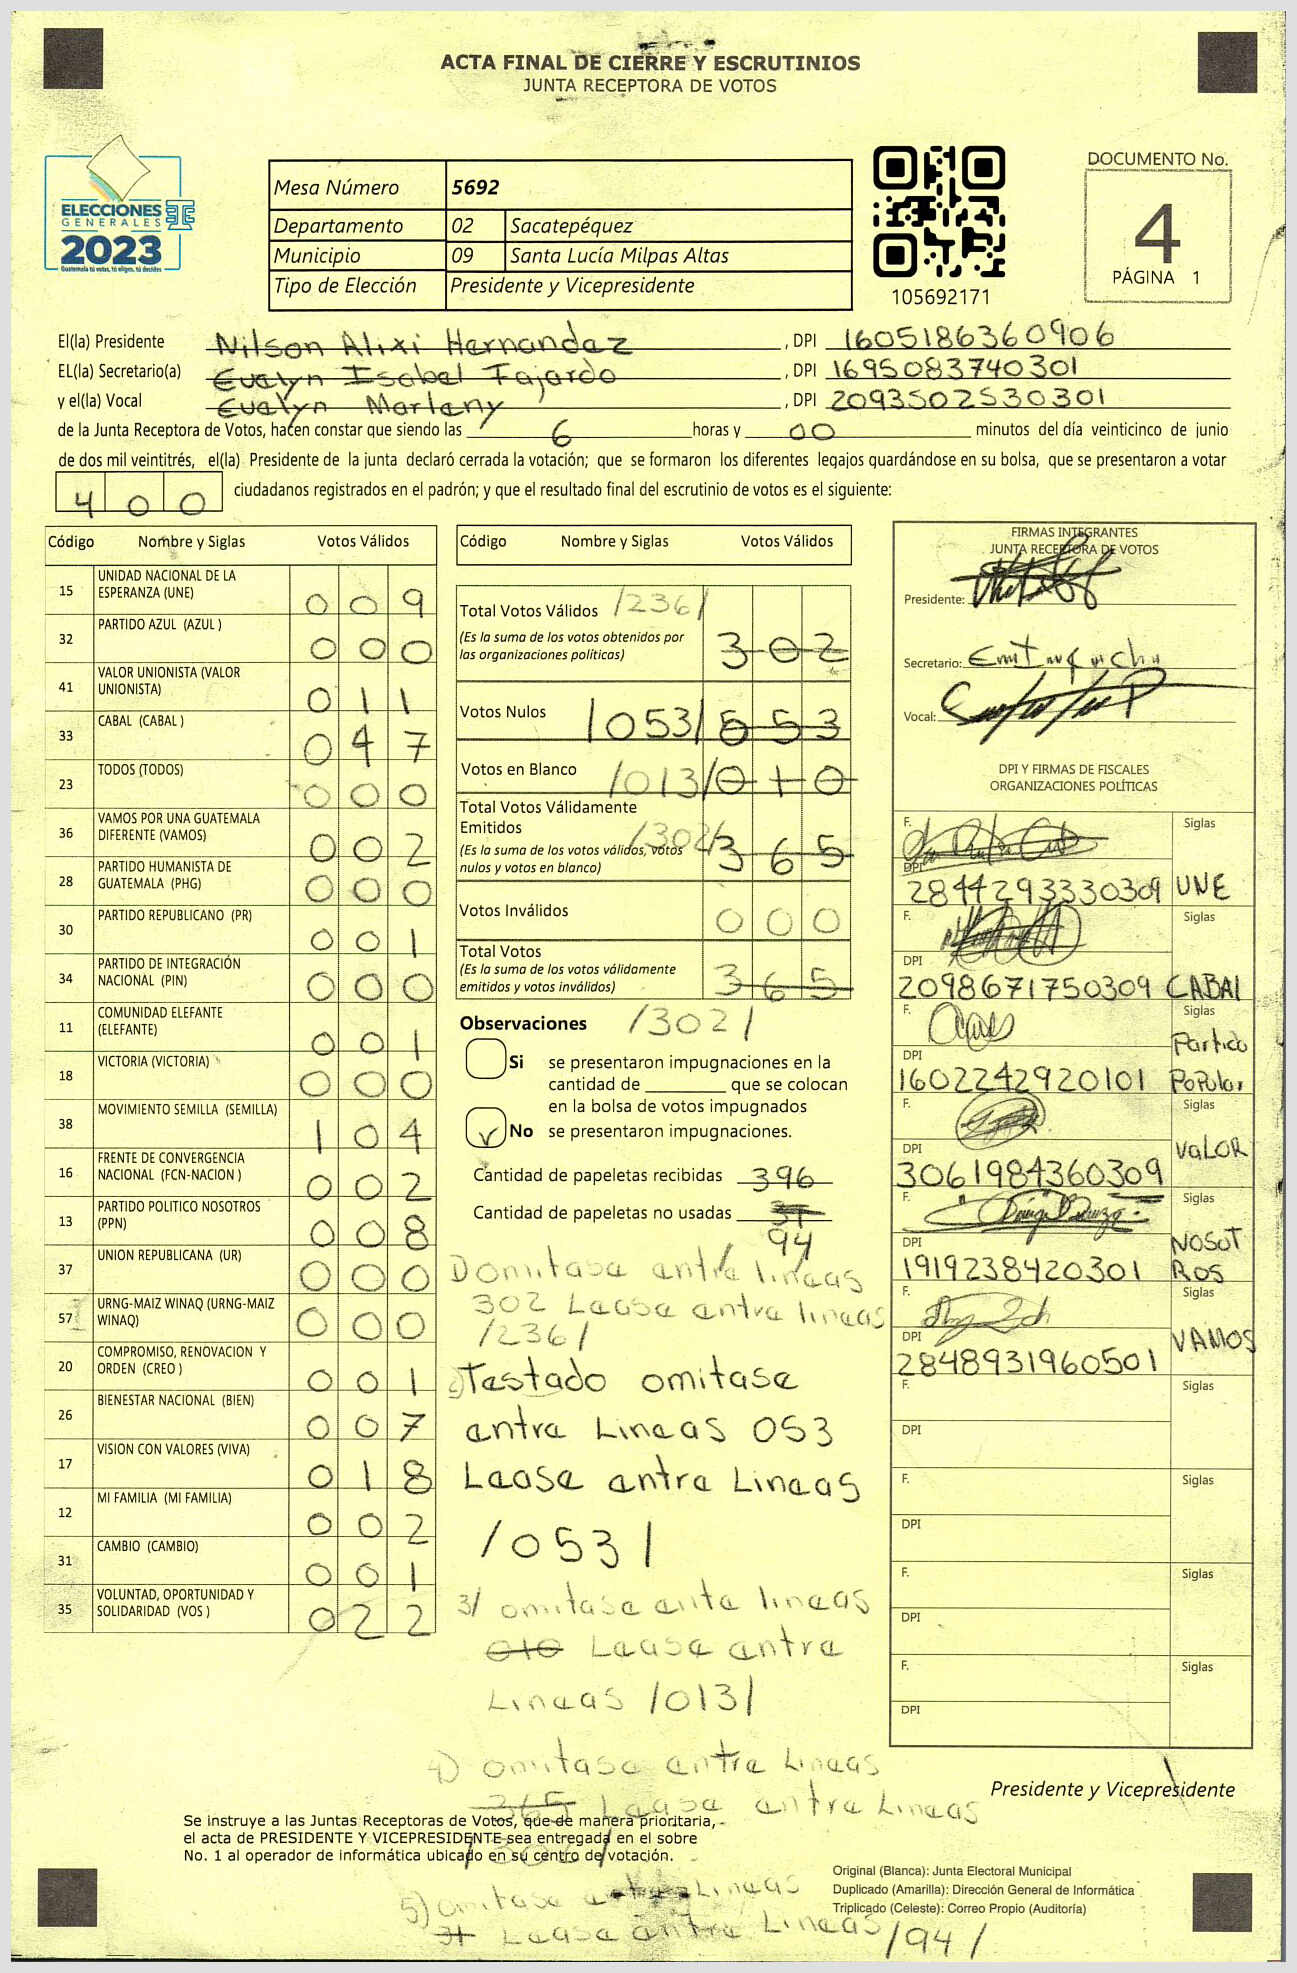 ACTA FINAL DE CIERRE Y ESCRUTINIOS
JUNTA RECEPTORA DE VOTOS
ELECCIONES
GENERALES
2023
Guatemala tú votas, tú eliges, tú decides
Mesa Número 5692
Departamento 02 Sacatepéquez
Municipio 09 Santa Lucía Milpas Altas
Tipo de Elección Presidente y Vicepresidente
105692171
DOCUMENTO No.
4
PÁGINA 1
El(la) Presidente Nilson Alixi Hernandez , DPI 1605186360906
EL(la) Secretario(a) Evelyn Isabel Fajardo , DPI 1695083740301
y el(la) Vocal Evelyn Marleny , DPI 2093502530301
de la Junta Receptora de Votos, hacen constar que siendo las 6 horas y 00 minutos del día veinticinco de junio
de dos mil veintitrés, el(la) Presidente de la junta declaró cerrada la votación; que se formaron los diferentes legajos quardándose en su bolsa, que se presentaron a votar
400 ciudadanos registrados en el padrón; y que el resultado final del escrutinio de votos es el siguiente:
Código Nombre y Siglas Votos Válidos
15 UNIDAD NACIONAL DE LA ESPERANZA (UNE) 009
32 PARTIDO AZUL (AZUL ) 000
41 VALOR UNIONISTA (VALOR UNIONISTA) 011
33 CABAL (CABAL ) 047
23 TODOS (TODOS) 000
36 VAMOS POR UNA GUATEMALA DIFERENTE (VAMOS) 002
28 PARTIDO HUMANISTA DE GUATEMALA (PHG) 000
30 PARTIDO REPUBLICANO (PR) 001
34 PARTIDO DE INTEGRACIÓN NACIONAL (PIN) 000
11 COMUNIDAD ELEFANTE (ELEFANTE) 001
18 VICTORIA (VICTORIA) 000
38 MOVIMIENTO SEMILLA (SEMILLA) 104
16 FRENTE DE CONVERGENCIA NACIONAL (FCN-NACION ) 002
13 PARTIDO POLITICO NOSOTROS (PPN) 008
37 UNION REPUBLICANA (UR) 000
57 URNG-MAIZ WINAQ (URNG-MAIZ WINAQ) 000
20 COMPROMISO, RENOVACION Y ORDEN (CREO ) 001
26 BIENESTAR NACIONAL (BIEN) 007
17 VISION CON VALORES (VIVA) 018
12 MI FAMILIA (MI FAMILIA) 002
31 CAMBIO (CAMBIO) 001
35 VOLUNTAD, OPORTUNIDAD Y SOLIDARIDAD (VOS ) 022
Código Nombre y Siglas Votos Válidos
Total Votos Válidos /236/ 302
(Es la suma de los votos obtenidos por
las organizaciones políticas)
Votos Nulos /053/ 053
Votos en Blanco /013/ 010
Total Votos Válidamente
Emitidos /302/ 365
(Es la suma de los votos válidos, votos
nulos y votos en blanco)
Votos Inválidos 000
Total Votos 365
(Es la suma de los votos válidamente
emitidos y votos inválidos)
Observaciones /302/
Si se presentaron impugnaciones en la
cantidad de ________ que se colocan
en la bolsa de votos impugnados
No se presentaron impugnaciones.
Cantidad de papeletas recibidas 396
Cantidad de papeletas no usadas 37
94
1) omitasa antre lineas
302 Leasa antra lineas
/236/
2) Testado omitasa
antra Lineas 053
Leasa antra Lineas
/053/
3/ omitasa anta lineas
010 Leasa antra
Lineas /013/
4) omitasa antra Lineas
365 Leasa antra Lineas
5) omitasa Lineas
Leasa antra Lineas /94/
FIRMAS INTEGRANTES
JUNTA RECEPTORA DE VOTOS
Presidente:
Secretario:
Vocal:
DPI Y FIRMAS DE FISCALES
ORGANIZACIONES POLÍTICAS
F. Siglas
DPI 2844293330309 UNE
F. Siglas
DPI 2098671750309 CABAl
F. Siglas
DPI 1602242920101 Partido Popular
F. Siglas
DPI 3061984360309 VaLOR
F. Siglas
DPI 1919238420301 NOSOTROS
F. Siglas
DPI 2848931960501 VAMOS
F. Siglas
DPI
F. Siglas
DPI
F. Siglas
DPI
F. Siglas
DPI
Presidente y Vicepresidente
Se instruye a las Juntas Receptoras de Votos, que de manera prioritaria,
el acta de PRESIDENTE Y VICEPRESIDENTE sea entregada en el sobre
No. 1 al operador de informática ubicado en su centro de votación.
Original (Blanca): Junta Electoral Municipal
Duplicado (Amarilla): Dirección General de Informática
Triplicado (Celeste): Correo Propio (Auditoría)